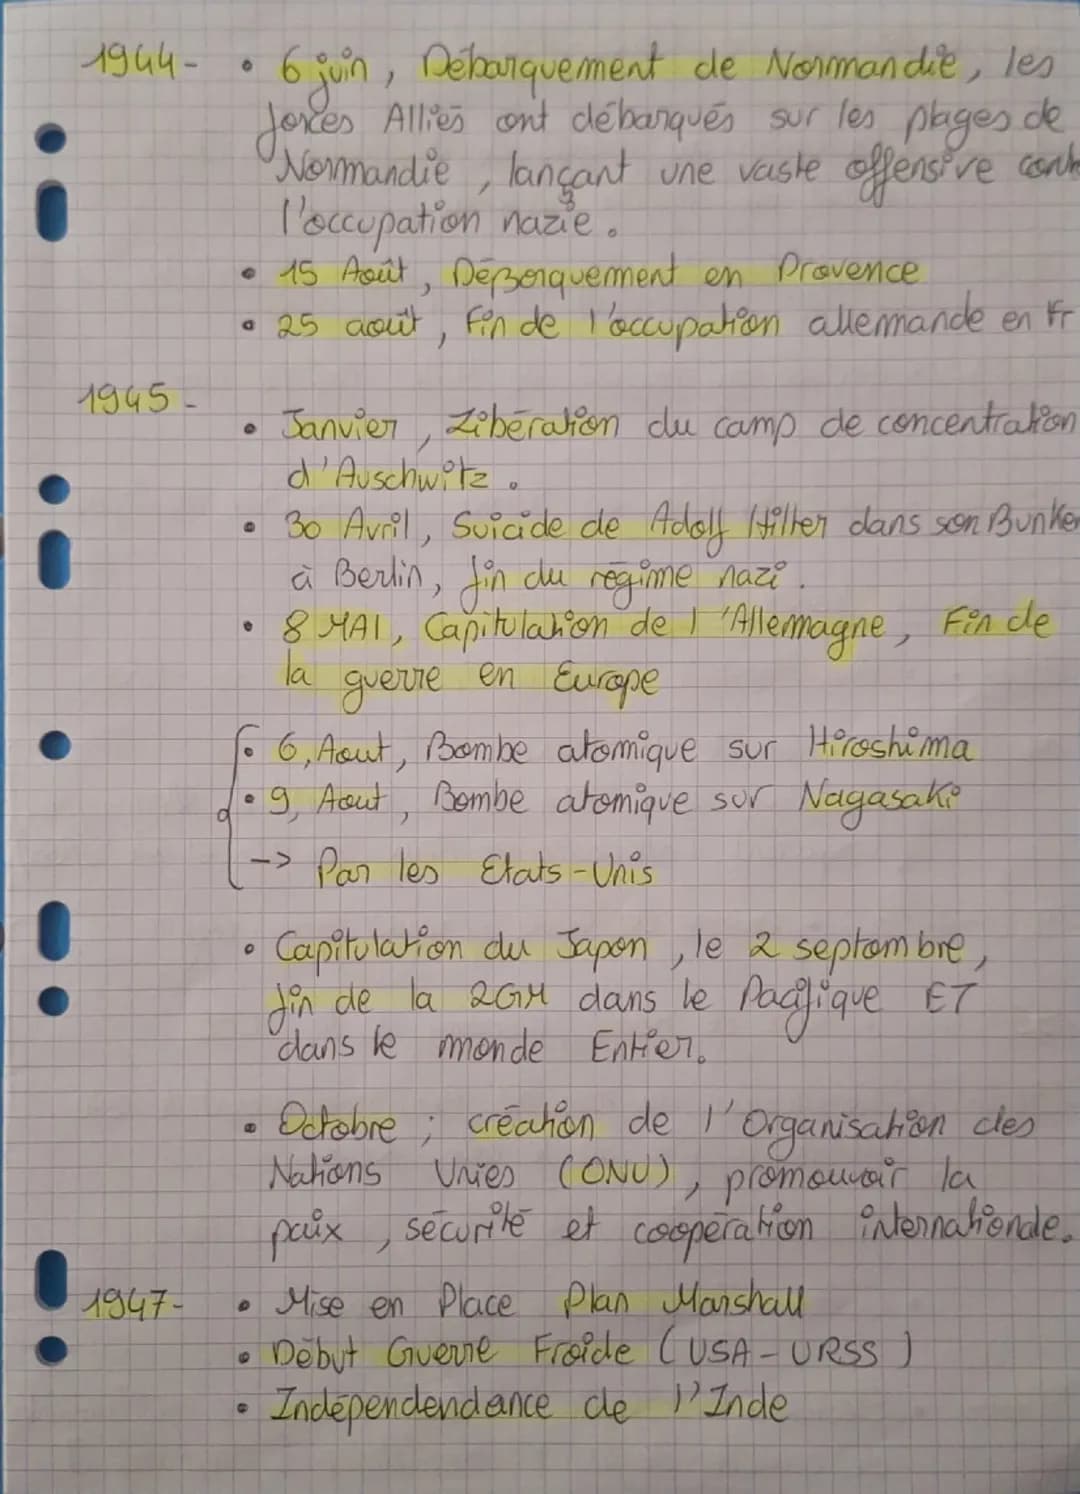 1944- • 6 juin, Débarquement de Normandie, les
forces Alliés ont débarqués sur les plages de
Normandie, lançant une vaste offensive cont
l'occupation nazie.
• 15 Août, Débarquement en Provence
• 25 août, Fin de l'occupation allemande en Fr
1945-
• Janvier, Libération du camp de concentration
d'Auschwitz.
• 30 Avril, Suicide de Adolf Hilter dans son Bunker
à Berlin, fin du régime nazi.
• 8 MAI, Capitulation de l'Allemagne, Fin de
la guerre en Europe
• 6, Aout, Bombe atomique sur Hiroshima
• 9, Aout, Bombe atomique sur Nagasaki
-> Par les Etats-Unis
• Capitulation du Japon, le 2 septembre,
fin de la 2GM dans le Pacifique ET
dans le monde Entier.
• Octobre ; création de l'Organisation des
Nations Unies (ONU), promouvoir la
paix, sécurité et coopération internationale.
1947- • Mise en Place Plan Marshall
• Début Guerre Froide (USA-URSS)
• Indépendendance de l'Inde